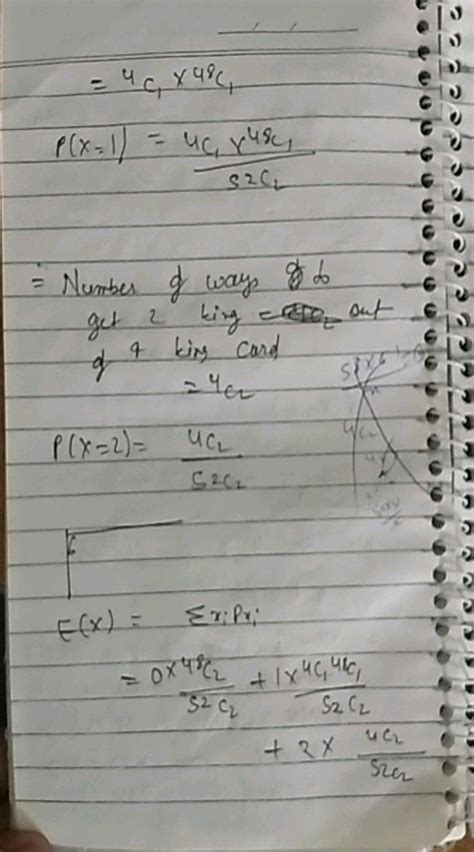 = 4C₁ × 48C₁
P(X=1) = 4C₁ × 48C₁ / 52C₂
= Number of ways to
get 2 king out
of 4 king card
= 4C₂
P(X=2) = 4C₂ / 52C₂
E(X) = Σxᵢ Pxᵢ
= 0 × 48C₂ / 52C₂ + 1 × 4C₁ 48C₁ / 52C₂
+ 2 × 4C₂ / 52C₂